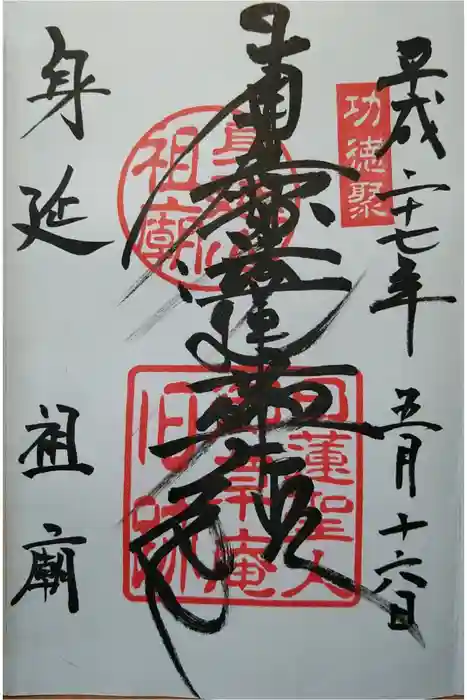 平成二十七年 五月十六日
功徳聚
南無妙法蓮華経
身延祖廟
日蓮聖人御草庵旧跡
身延 祖廟